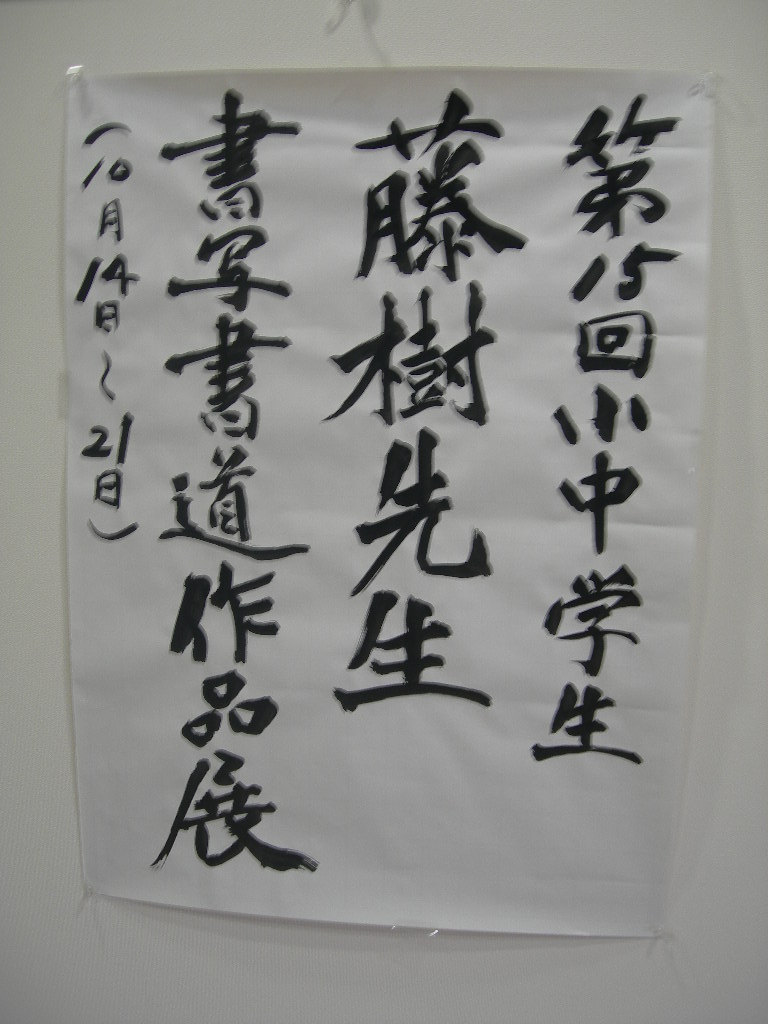 第15回小中学生
藤樹先生
書写書道作品展
(10月14日~21日)